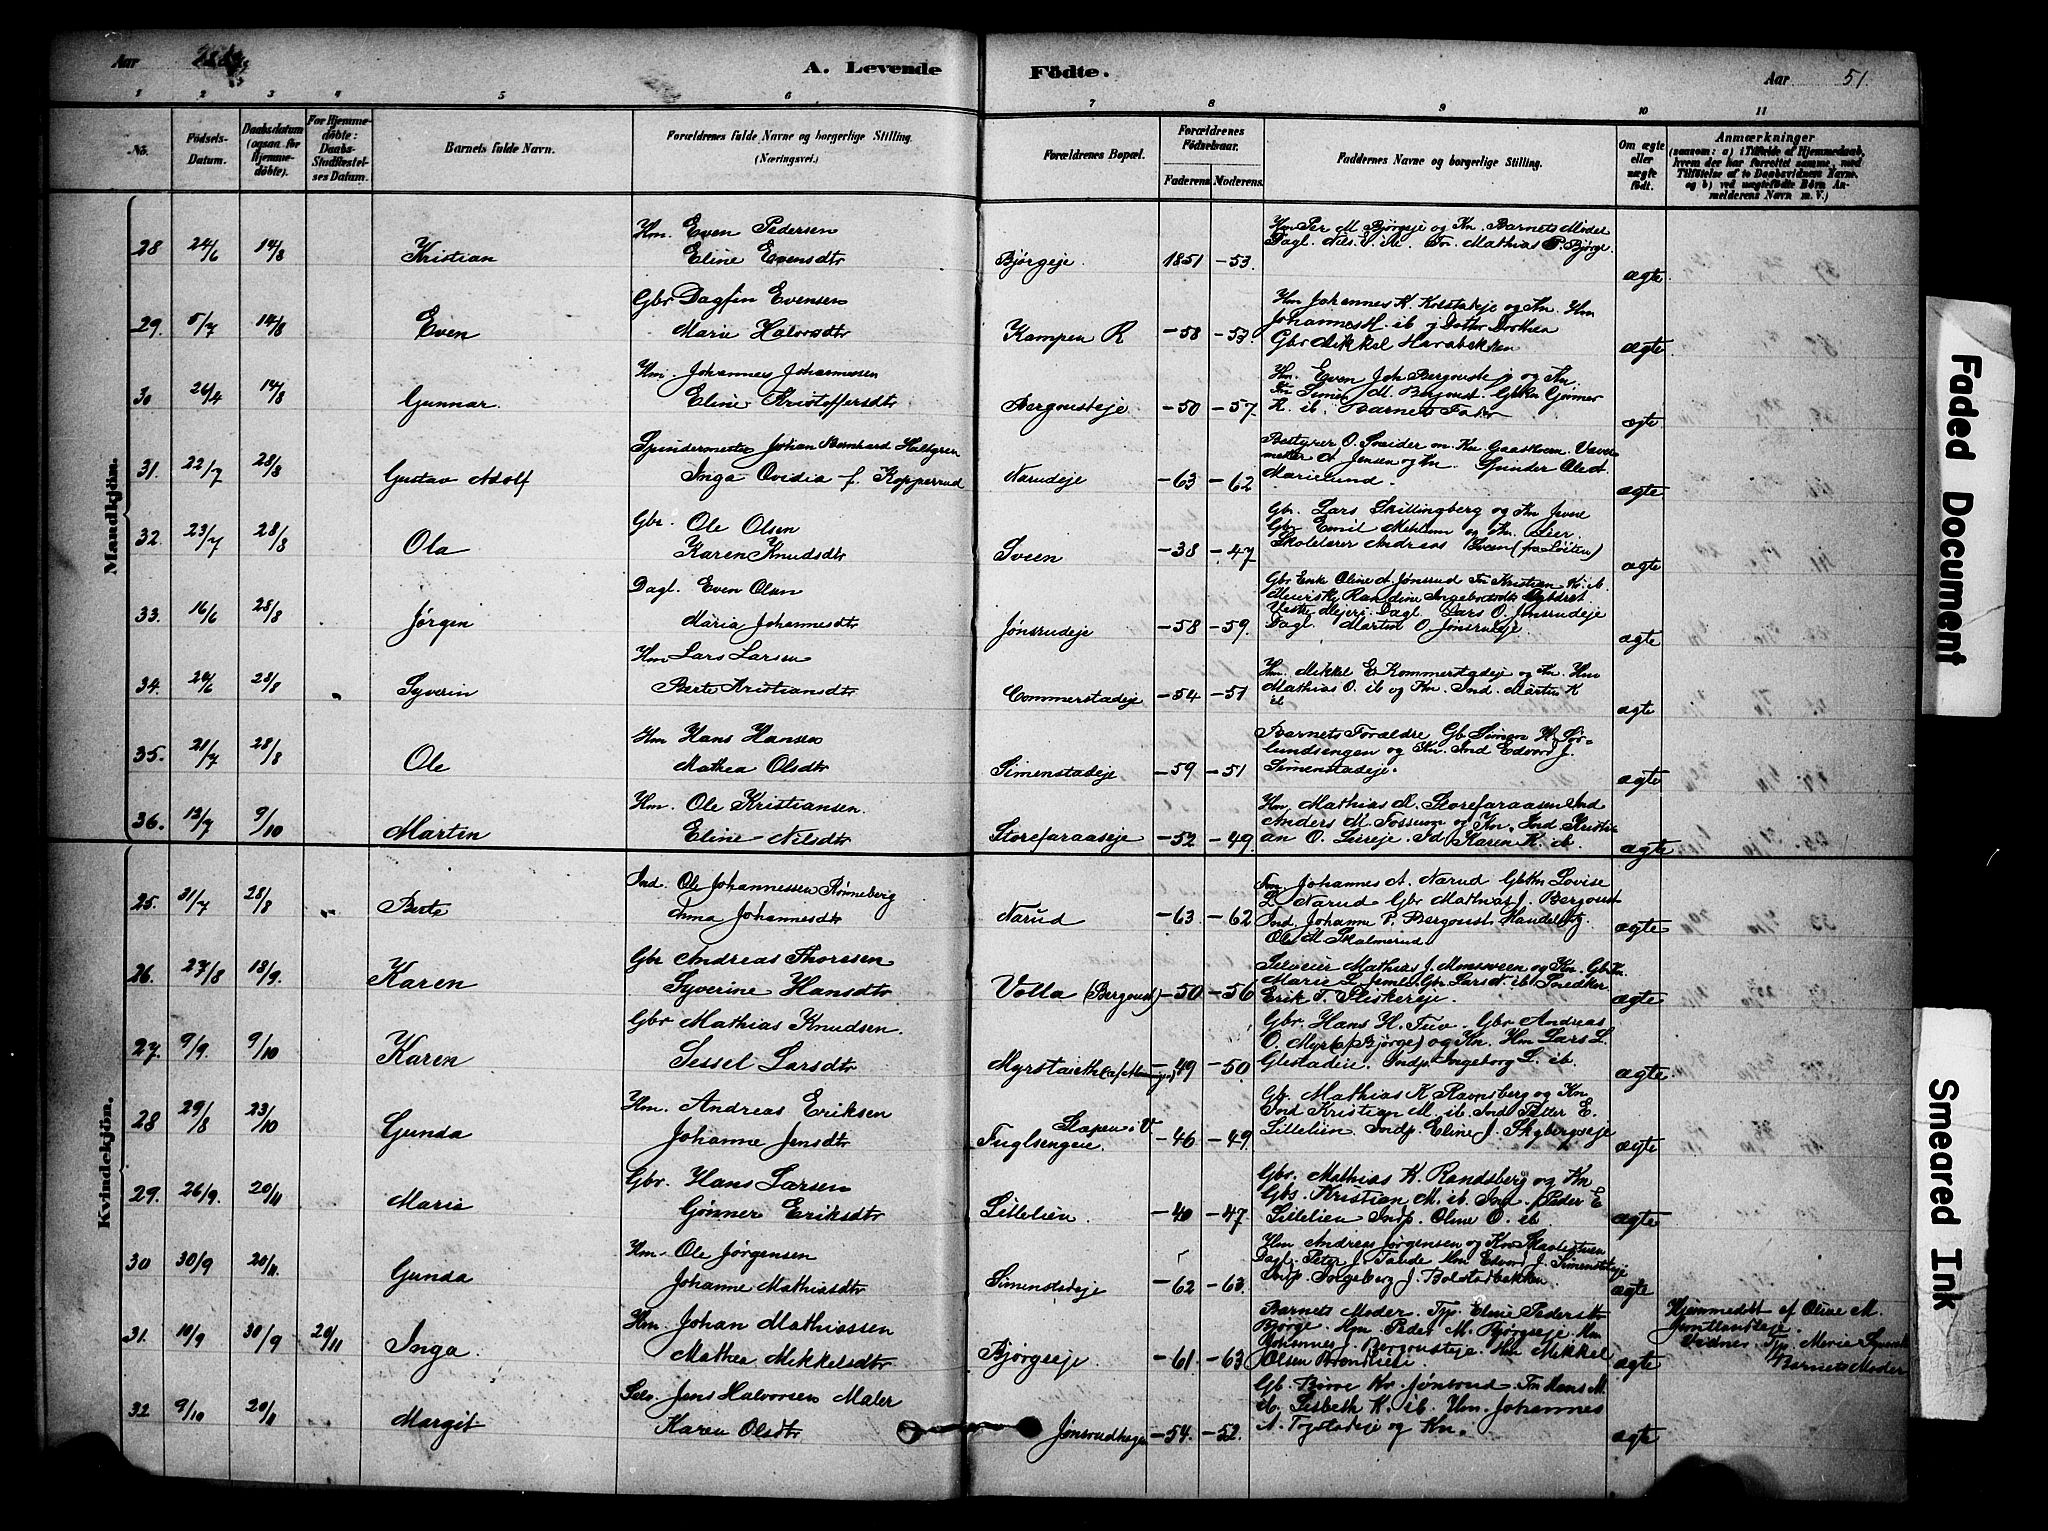 Aar
A. Levende Födte.
Aar 51.
1 2 3 4 5 6 7 8 9 10 11
No.
Födsels-Datum.
Daabsdatum (ogsaa for Hjemmedöbte).
For Hjemmedöbte: Daabs-Stadfæstelses Datum.
Barnets fulde Navn.
Forældrenes fulde Navne og borgerlige Stilling. (Næringsvei.)
Forældrenes Bopæl.
Forældrenes Födselsaar.
Faderens Moderens
Faddernes Navne og borgerlige Stilling.
Om ægte eller uægte födt.
Anmærkninger
(saasom: a) i Tilfælde af Hjemmedaab, hvem der har forrettet samme, med Tilföielse af to Daabsvidners Navne, og b) ved uægtefödte Börn Anmelderens Navn m. V.)
Mandkjön.
28 24/6 14/8 Kristian
Hm. Even Pedersen
Eline Evensdtr
Bjørgeje 1851 -53.
Hm Per M Bjørgeje og Kn. Barnets Moder
Dagl. Nils E. ib. Fn. Mathias P. Bjørge
ægte
29. 5/7 14/8 Even
Gbr Dagfin Evensen
Marie Halvorsdtr
Kampen R -58 -53.
Hm Johannes K. Kolstadeje og Kn. Hm
Johannes H. ib og Datter Dorthea
Gbr Mikkel Harabekken
ægte
30 26/4 14/8 Gunnar.
Hm. Johannes Johannessen
Eline Kristoffersdtr
Bergousteje -50 -57
Hm. Even Joh. Bergousteje og Kn.
Fn Simen M. Bergoust. Gbkn Gjønner
K. ib. Barnets Fader
ægte
31. 22/7 28/8 Gustav Adolf
Spindermester Johan Bernhard Hallgren
Inga Ovidia f. Kopperud
Narudeje -63 -62
Bestyrer O. Sneider m. Kn
Jensen og Kn. Spinder Ole A.
Marielund.
ægte
32. 23/7 28/8 Ola
Gbr. Ole Olsen
Karen Knudsdtr
Sveen -38 -47
Gbr. Lars Skillingberg og Kn
Gbr Emil Mehlum og Kn. Lier.
Skolelærer Andreas Sveen (fra Løiten)
ægte
33. 16/6 28/8 Jørgen
Dagl. Even Olsen
Maria Johannesdtr
Jønsrudeje -58 -59.
Gbr Enke Oline A. Jønsrud Fn Kristian K. ib
Meierske Randine Ingebretsdtr
Meieri. Dagl. Lars O. Jønsrudeje
Dagl. Martin O. Jønsrudeje.
ægte
34. 20/6 28/8 Syverin
Hm Lars Larsen
Berte Kristiansdtr
Commerstadeje -54 -51
Hm. Mikkel E. Kommerstadeje og Kn. Hm
Mathias O. ib og Kn. Ind. Martin K
ib
ægte
35. 21/7 28/8 Ole
Hm Hans Hansen
Mathea Olsdtr
Simenstadeje -59 -51
Barnets Forældre Gb. Simen H. Sør-
lundsengen og Kn. Ind Edvard J.
Simenstadeje.
ægte
36. 13/7 9/10 Martin
Hm. Ole Kristiansen.
Eline Nilsdtr
Storefaraaseje -52 -49.
Hm. Mathias M. Storefaraasen Ind
Anders M. Fossum og Kn. Ind Kristi-
an O. Lierseje. Karen K. ib.
ægte
Kvindekjön.
25. 31/7 28/8 Berte
Ind. Ole Johannessen Rønneberg
Anna Johannesdtr
Narud -63 -62
Johannes A. Narud Gbkn Lovise
L. Narud Gbr Mathias J. Bergoust
Ind. Johanne P. Bergoust Handelsbg.
Ole M. Skalmerud.
ægte
26. 27/8 18/9. Karen
Gbr Andreas Thoresen
Syverine Hansdtr
Volla (Bergoust) -50 -56
Selveier Mathias J. Monsveen og Kn. Gbkn.
Marie L. Gbr Lars N. ib Snedker
Erik T. Fliskereje.
ægte
27. 9/9. 9/10 Karen
Gbr Mathias Knudsen.
Sessel Larsdtr
-49 -50.
Gbr. Hans H. Tuv. Gbr Andreas
O. Myr (af Bjørge) og Kn. Hm Lars L.
Glestadeie. Indp. Ingeborg L. ib.
ægte
28 29/8 23/10 Gunda
Hm. Andreas Eriksen
Johanne Jensdtr
Slapen. V
Fuglsengeie. -46 -49.
Gb. Mathias K. Ravnsberg og Kn
Ind Kristian M. ib. Ind Peder E.
Lillelien. Indp Eline J. Skybergseje
ægte
29. 26/9. 20/11 Maria
Gbr. Hans Larsen
Gjønner Eriksdtr
Lillelien. -40 -47.
Gbr. Mathias K. Randsberg og Kn
Gbs. Kristian M. ib Ind. Peder E
Lillelien Indp. Oline O. ib.
ægte
30 30/9 20/11. Gunda
Hm. Ole Jørgensen
Johanne Mathiasdtr
Simenstadeje -62 -63.
Hm Andreas Jørgensen og Kn
Dagl. Peter J. Taude Hm Edvard J. Simenstadeje
Indp. Ingeborg J. Bolstadbakken.
ægte
31. 10/9 30/9 20/11 Inga.
Hm. Johan Mathiassen
Mathea Mikkelsdtr
Bjørgeeje. -61. -63
Barnets Moder. Tp. Eline Pedersdtr
Bjørge. Hm Peder M. Bjørgeeje. Hm
Johannes J. Bergousteje. Hm Mikkel
Olsen Brendlieie.
ægte
Hjemmedøbt af Oline M.
Vidner Tp. Marie
Barnets Moder
32 9/10 20/11 Margit
Selv. Jens Halvorsen Maler
Karen Olsdtr
Jønsrudhagen -54. -52.
Gb. Børre Kr. Jønsrud. Fn Hans M.
ib. Lisbeth K. ib. Hm. Johannes
A. Togstadeje og Kn.
ægte
Faded Document
Smeared Ink